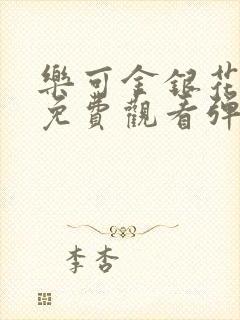 樂可金銀花
免費觀看彈
李杏